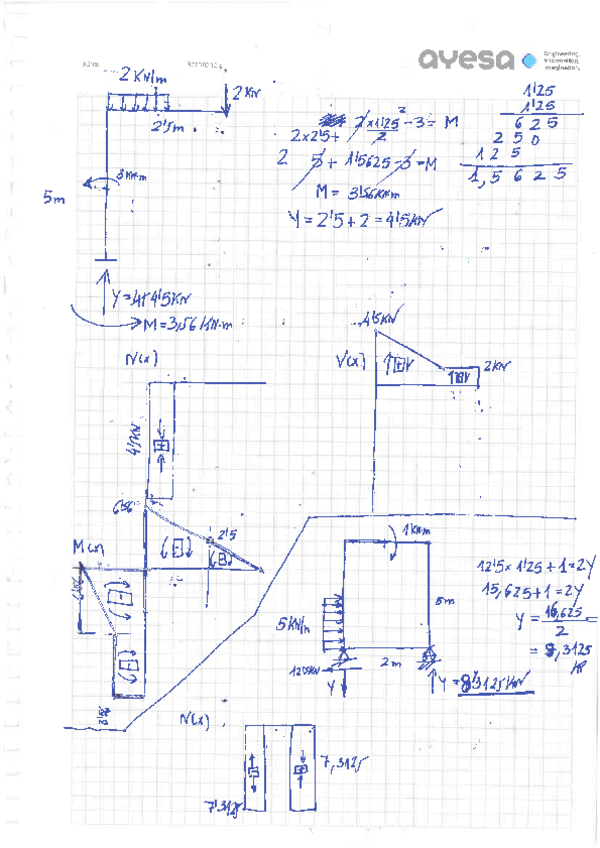 ayesa
Engineering.
2 KN/m
2 KN
2'5m
3 KNm
5m
Y=4'5KN
M=3,56 KN·m
2x2'5+ 2x1'25² -3= M
2
2 5 + 1'5625-3=M
M= 3'56KNm
Y=2'5+2=4'5KN
1'25
1'25
6 2 5
2 5 0
1 2 5
1,5 6 2 5
N(x)
4'5KN
4'5KN
V(x)
2KN
6'56
2'5
M(x)
6'56
3'56
1KNm
5m
5KN/m
2m
12'5KN
Y
Y=8'3125KN
12'5x1'25+1=2Y
15,625+1=2Y
Y= 16,625
2
= 8,3125
N(x)
7,3125
7'3125